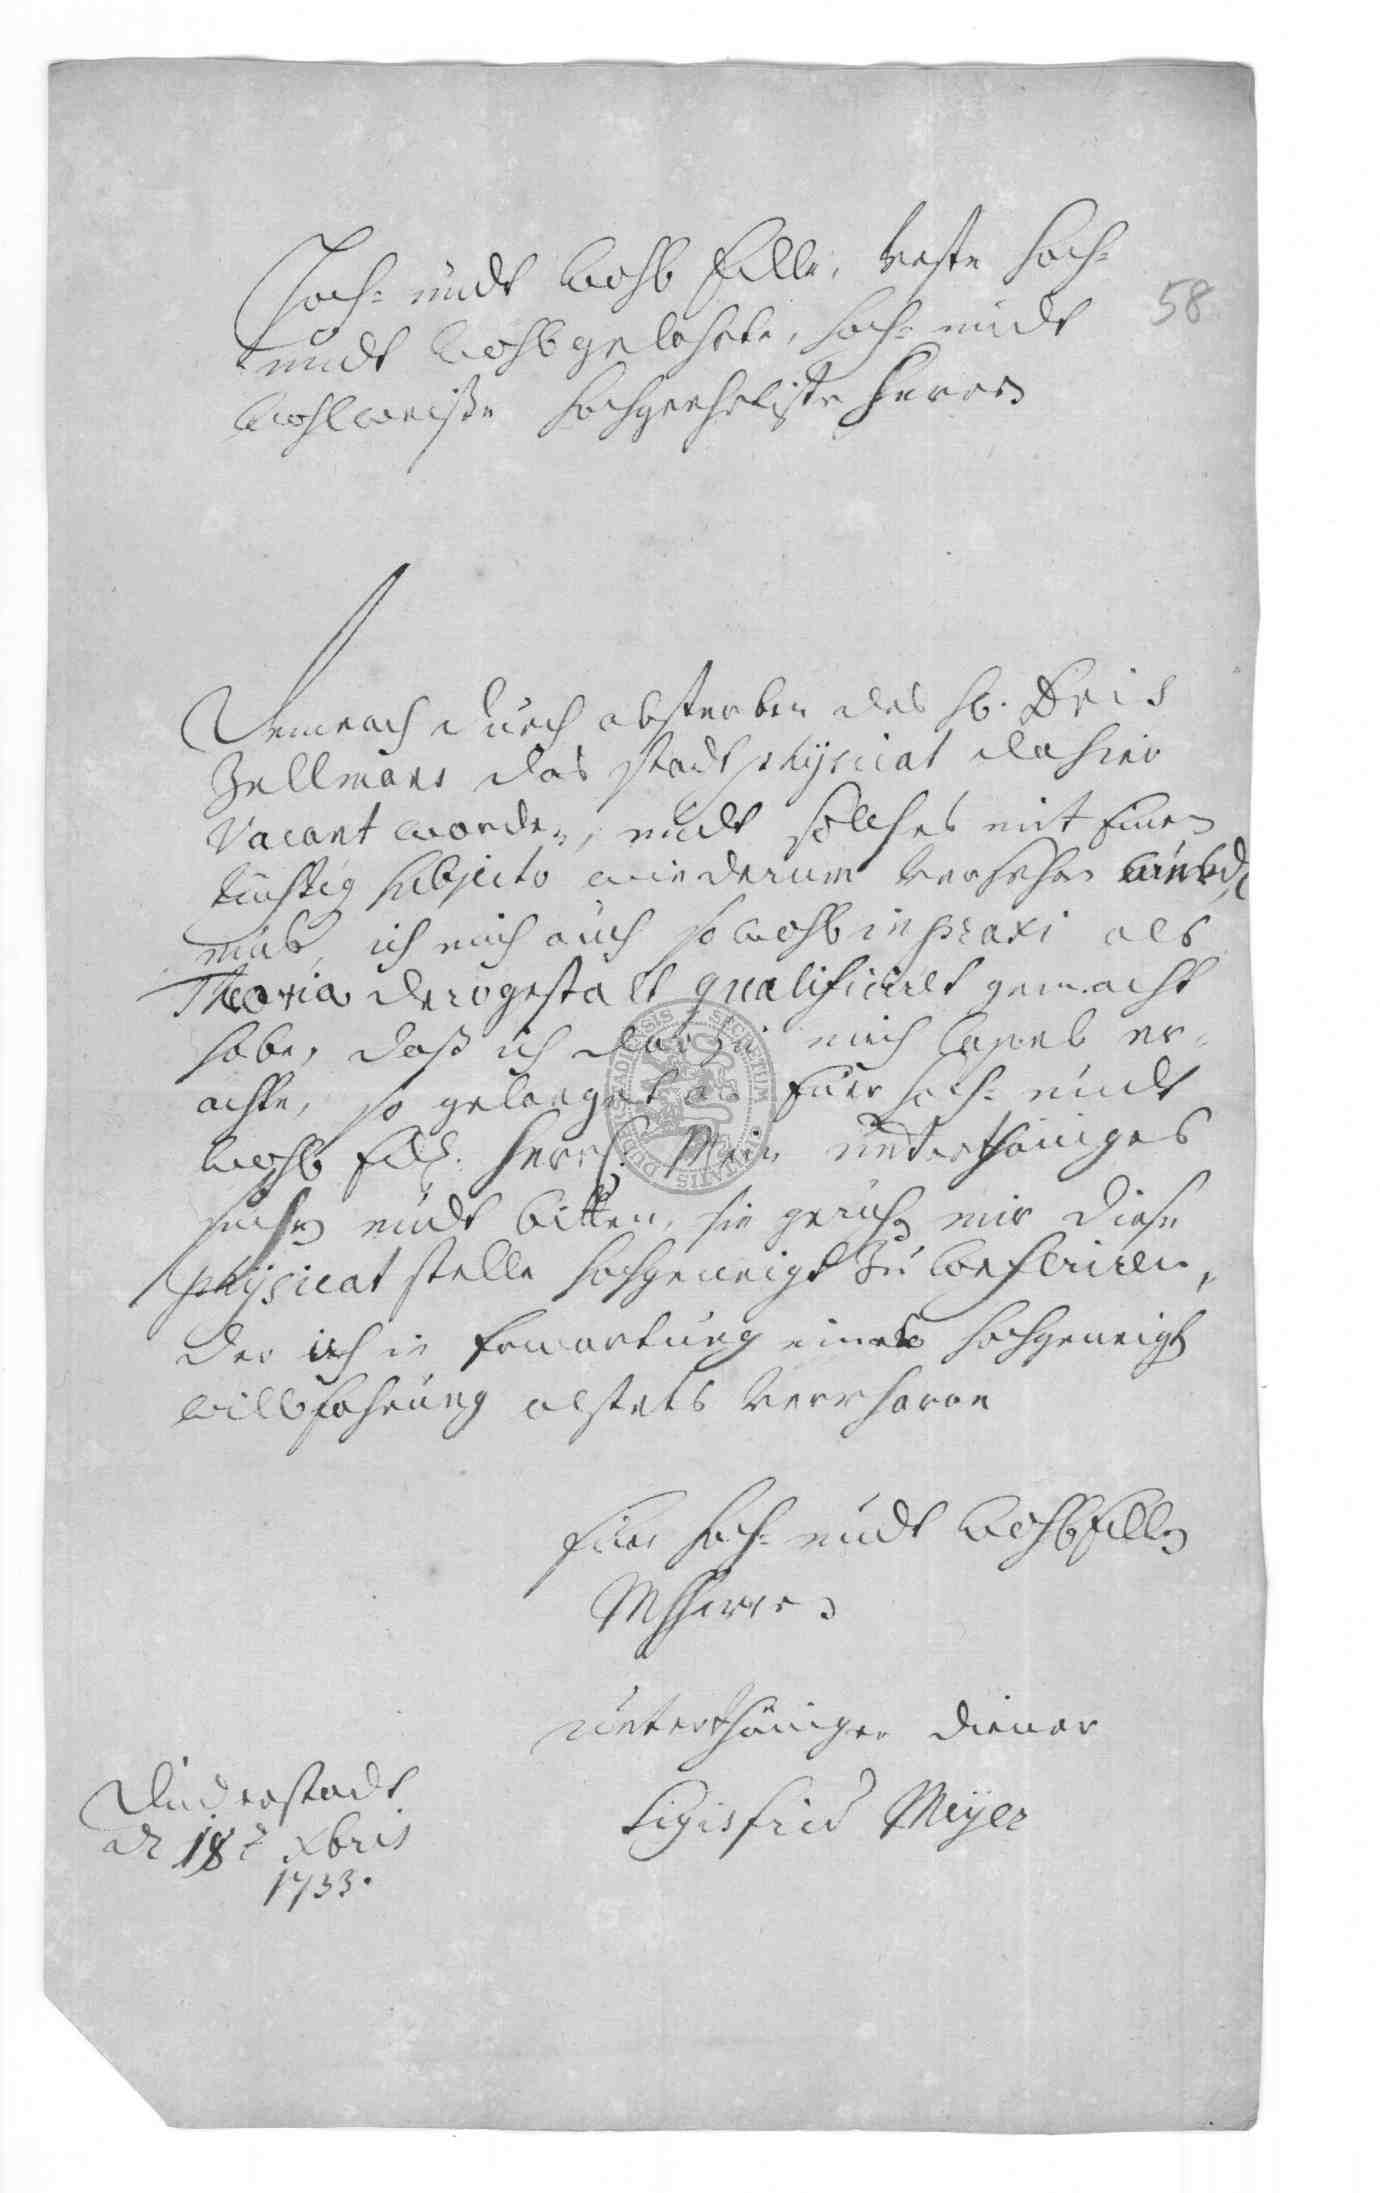 Hoch- undt Wohl Edle, Veste Hoch-
undt Wohlgelahrte, Hoch- undt
Wohlweiße Hochgeehrtiste Herren
58
Demnach durch absterben des H. Dris
Zellmans das Stadt physicat dahier
Vacant worden, undt solches mit Einen
tüchtig subjecto wiederum versehen werd
mus, ich mich auch so wohl in praxi als
Theoria derogestalt qualificirt gemacht
habe, daß ich darzu mich capabel er-
achte, so gelanget an Euer Hoch- undt
Wohl Edl. Herrl. Mein unterthäniges
suchen undt bitten, sie geruhen mir diese
physicat stelle hochgeneigt zu conferiren,
der ich in Erwartung eines hochgeneigt
willfahrung alstets verharre
Euer Hoch- undt Wohl Edlen
Mhherren
unterthäniger Diener
Sigisfrid Meyer
Duderstadt
d 18t Xbris
1733.
SECRETUM CIVITATIS DUDERSTADIENSIS